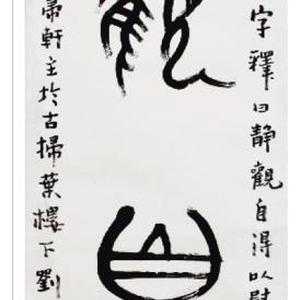 字釋曰靜觀自得以
觀自
帚軒主於古掃葉樓下劉